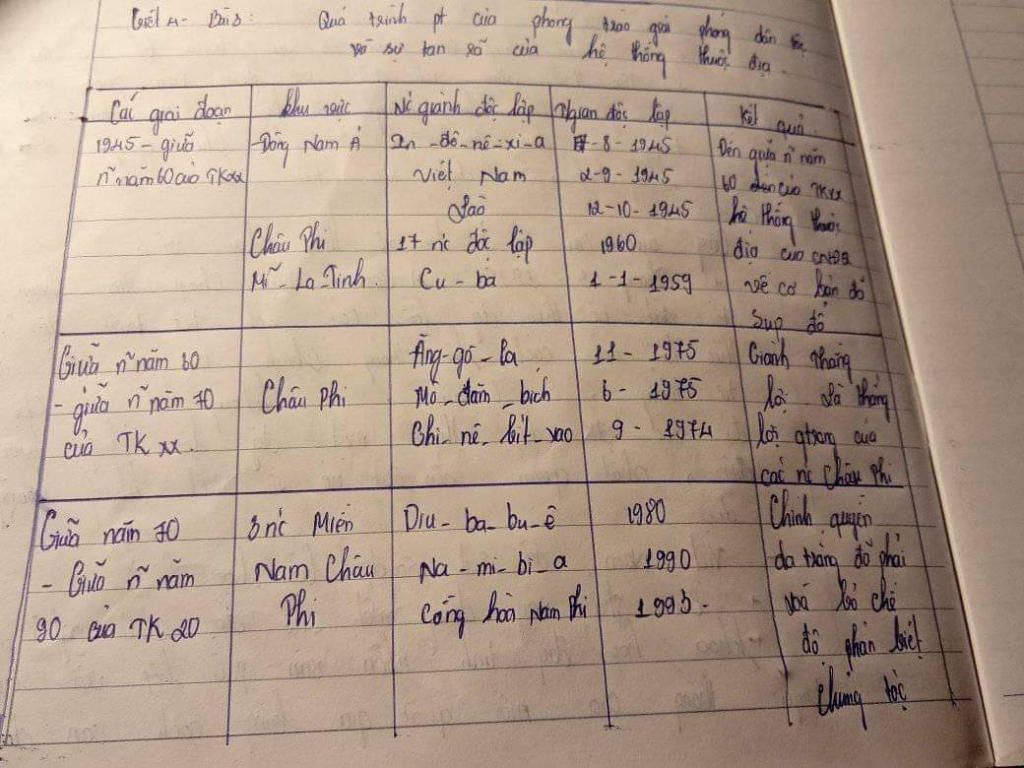 Tiết 4 - Bài 3: Quá trình pt của phong trào giải phóng dân tộc
và sự tan rã của hệ thống thuộc địa.
Các giai đoạn khu vực Nc giành độc lập Ngian độc lập Kết quả
1945 - giữa
n~ năm 60 của TKxx
- Đông Nam Á
Châu Phi
Mĩ - La - Tinh.
In - đô - nê - xi - a
Việt Nam
Lào
17 nc độc lập
Cu - ba
- 8 - 1945
2 - 9 - 1945
12 - 10 - 1945
1960
1 - 1 - 1959
Đến giữa n~ năm
60 của TKxx
hệ thống thuộc
địa của CNĐQ
về cơ bản đã
sụp đổ
Giữa n~ năm 60
- giữa n~ năm 70
của TK xx.
Châu Phi
Ăng - gô - la
Mô - dăm - bich
Ghi - nê - bit - xao
11 - 1975
6 - 1975
9 - 1974
Giành thắng
lợi là thắng
lợi qtrọng của
các nc Châu Phi
Giữa năm 70
- Giữa n~ năm
90 của TK 20
3 nc Miền
Nam Châu
Phi
Dim - ba - bu - ê
Na - mi - bi - a
Cộng hoà Nam Phi
1980
1990
1993.
Chính quyền
da trắng đã phải
xoá bỏ chế
độ phân biệt
chủng tộc